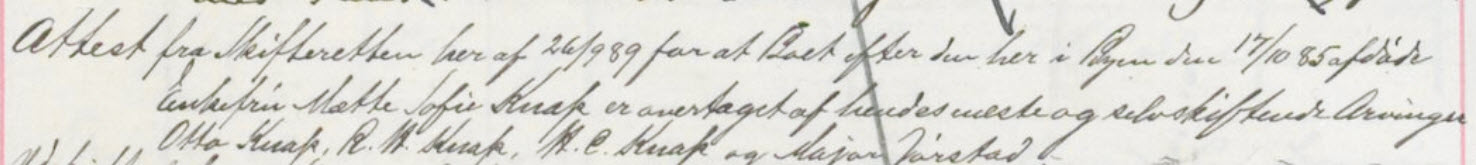 Attest fra Skifteretten her af 26/9 89 for at Boet efter den her i Byen den 17/10 85 afdøde
Enkefru Mette Sofie Knap er overtaget af hendes næste og selvskiftende Arvinger
Otto Knap, R. H. Knap, H. C. Knap og Major Jørstad